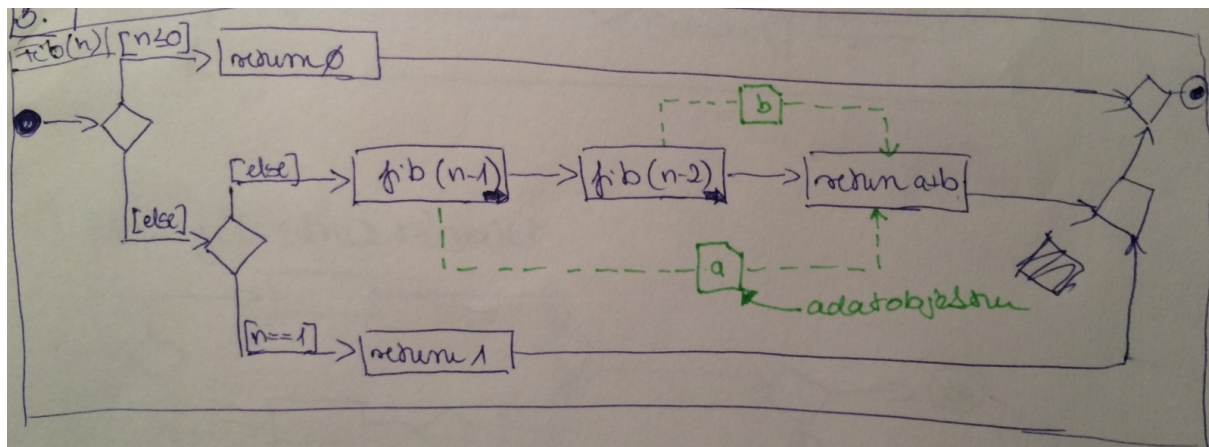 3.
fib(n)
[n≤0]
return 0
b
[else]
fib(n-1)
fib(n-2)
return a+b
[else]
a
adatobjektum
[n==1]
return 1